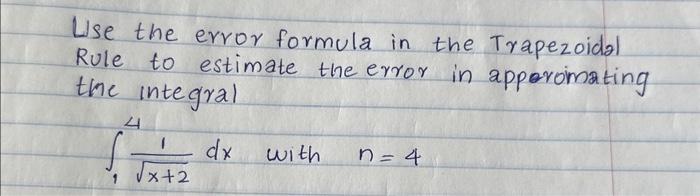 Use the error formula in the Trapezoidal
Rule to estimate the error in apperoimating
the integral
∫₁⁴ 1/√x+2 dx with n = 4